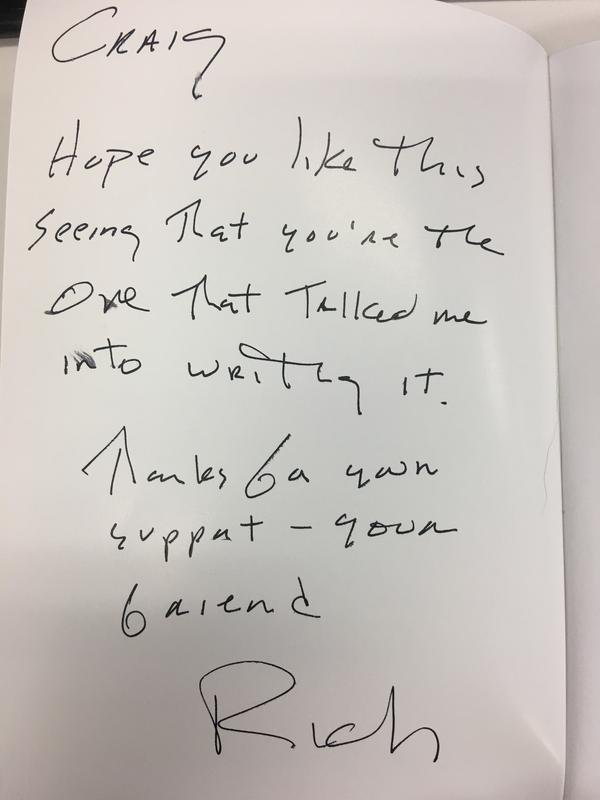 Craig
Hope you like this
seeing that you're the
one that talked me
into writing it.
Thanks for your
support - your
friend
Rich